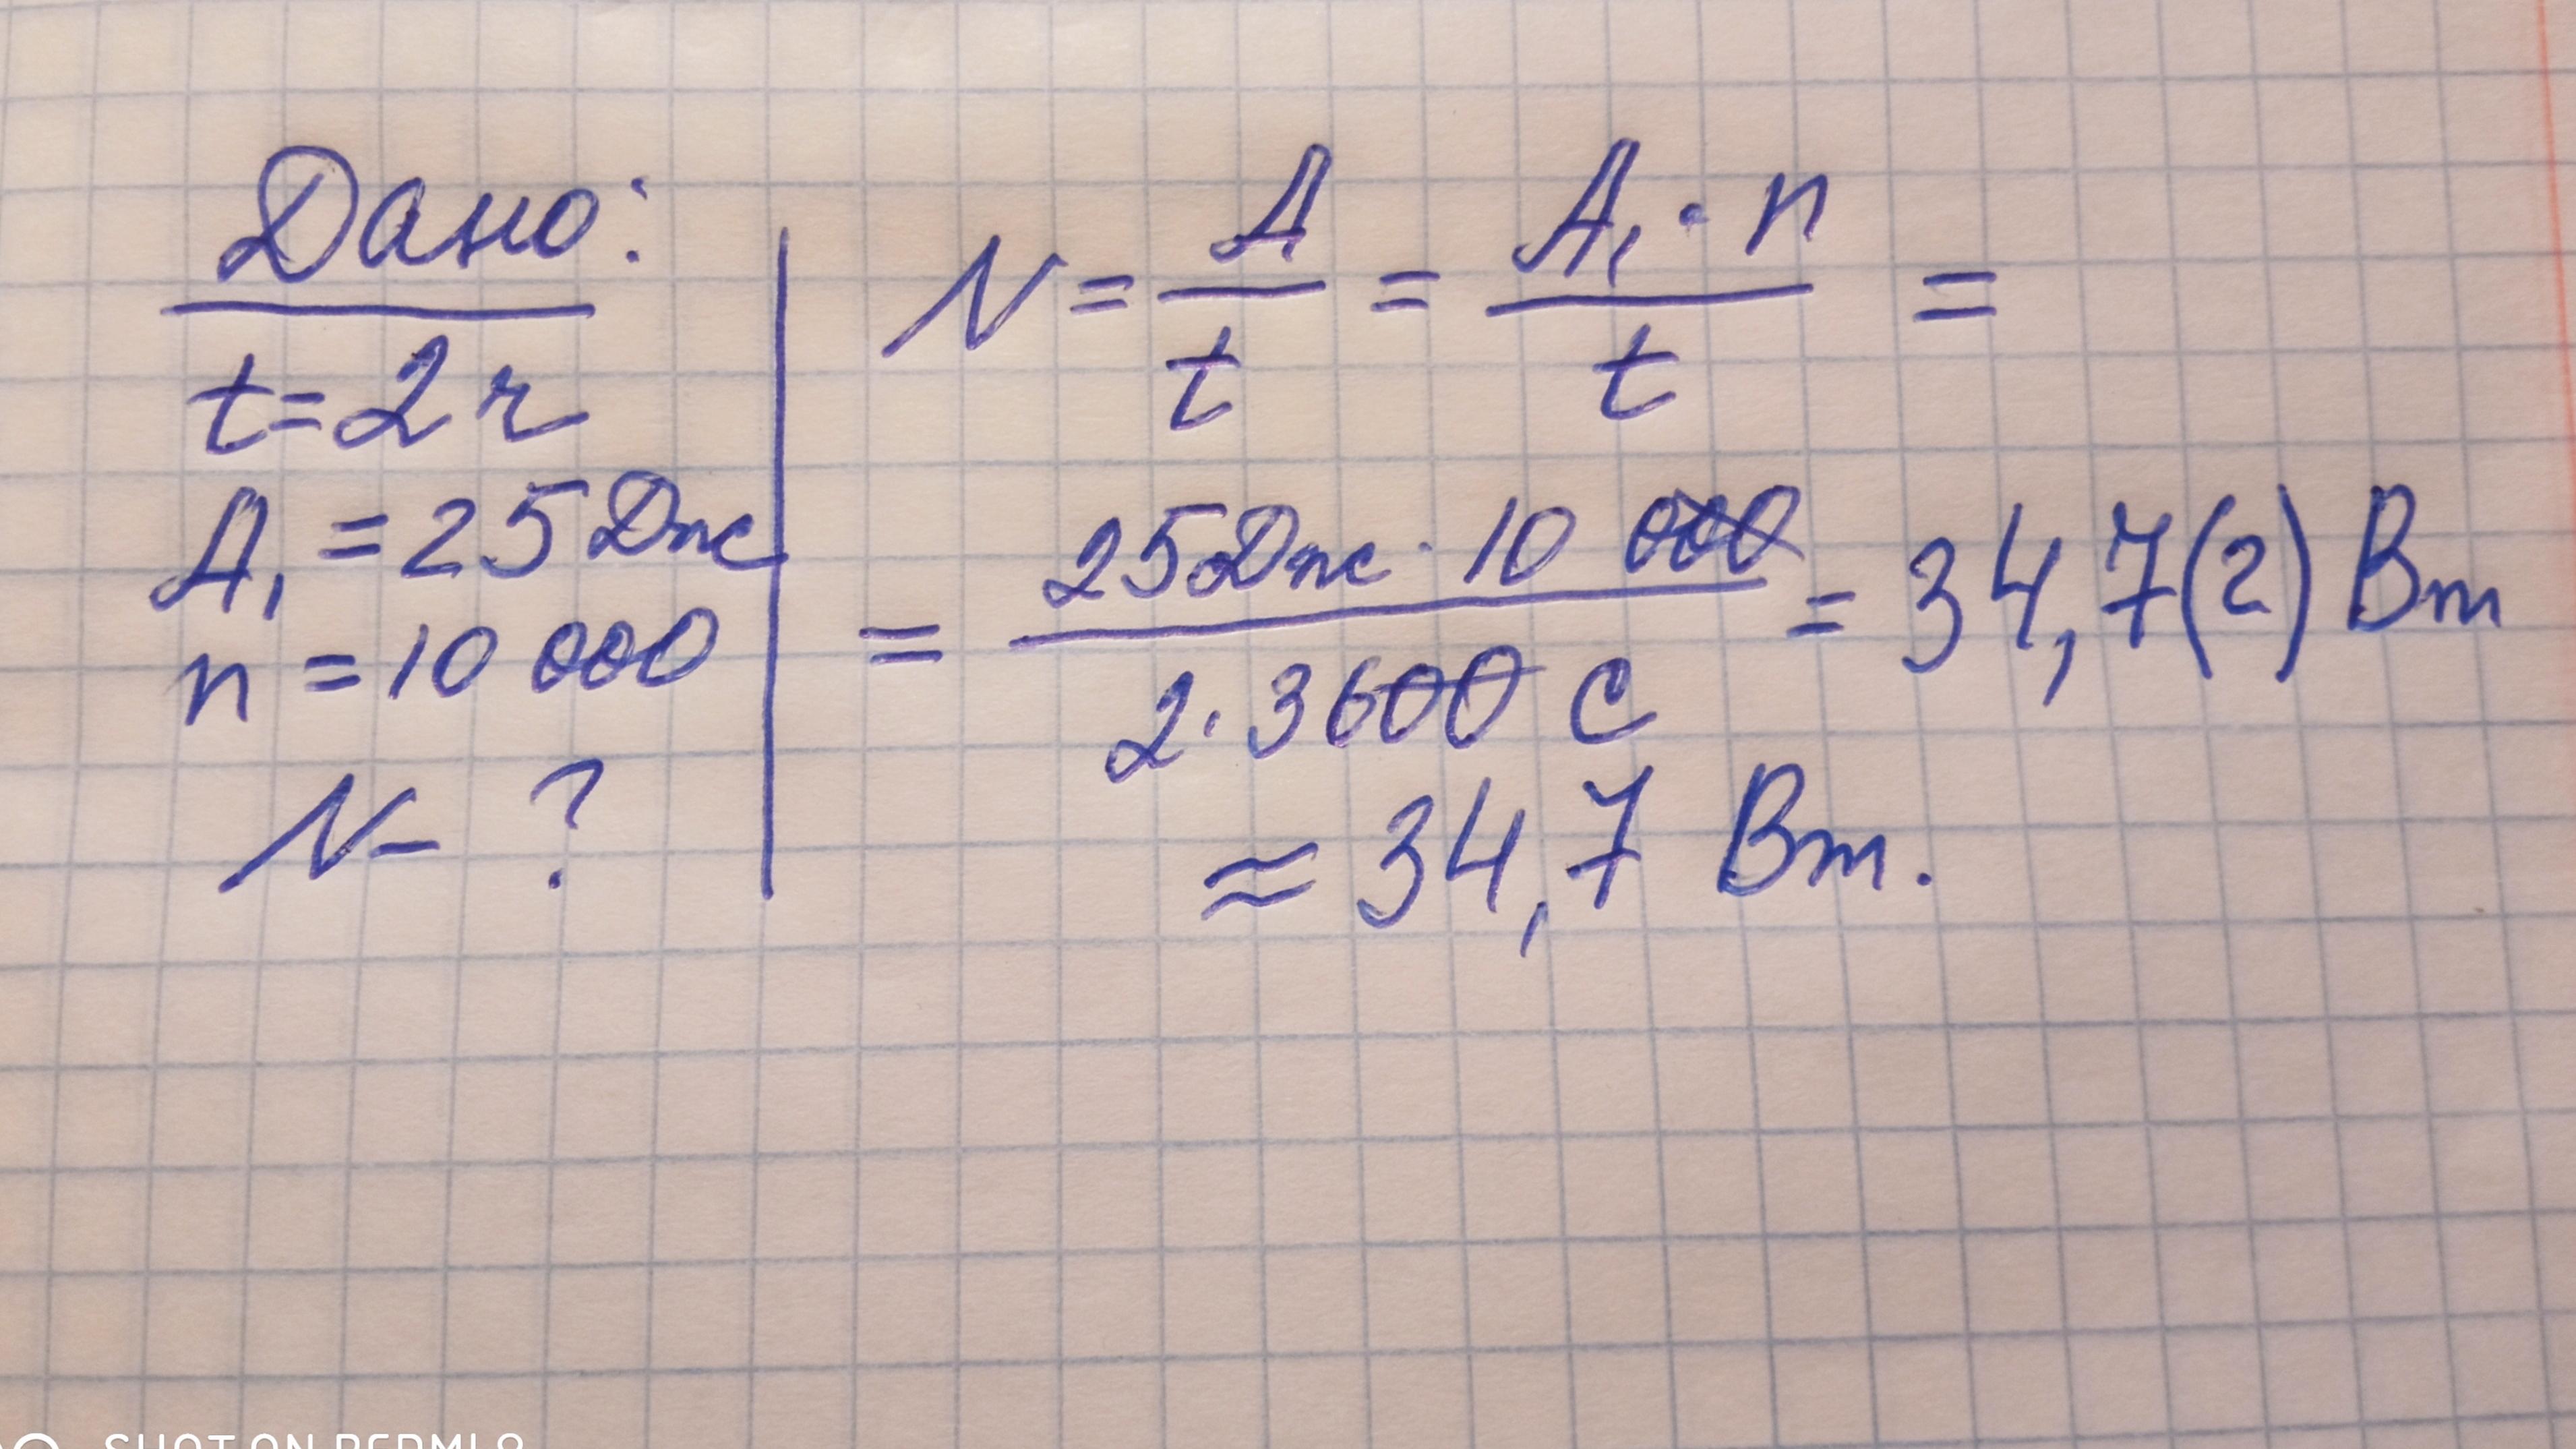 Дано:
t=2ч
A₁ = 25 Дж
n = 10 000
N - ?
N = A/t = A₁ · n / t =
= 25 Дж · 10 000 / 2 · 3600 с = 34,7(2) Вт
≈ 34,7 Вт.
SHOT ON REDMI 8